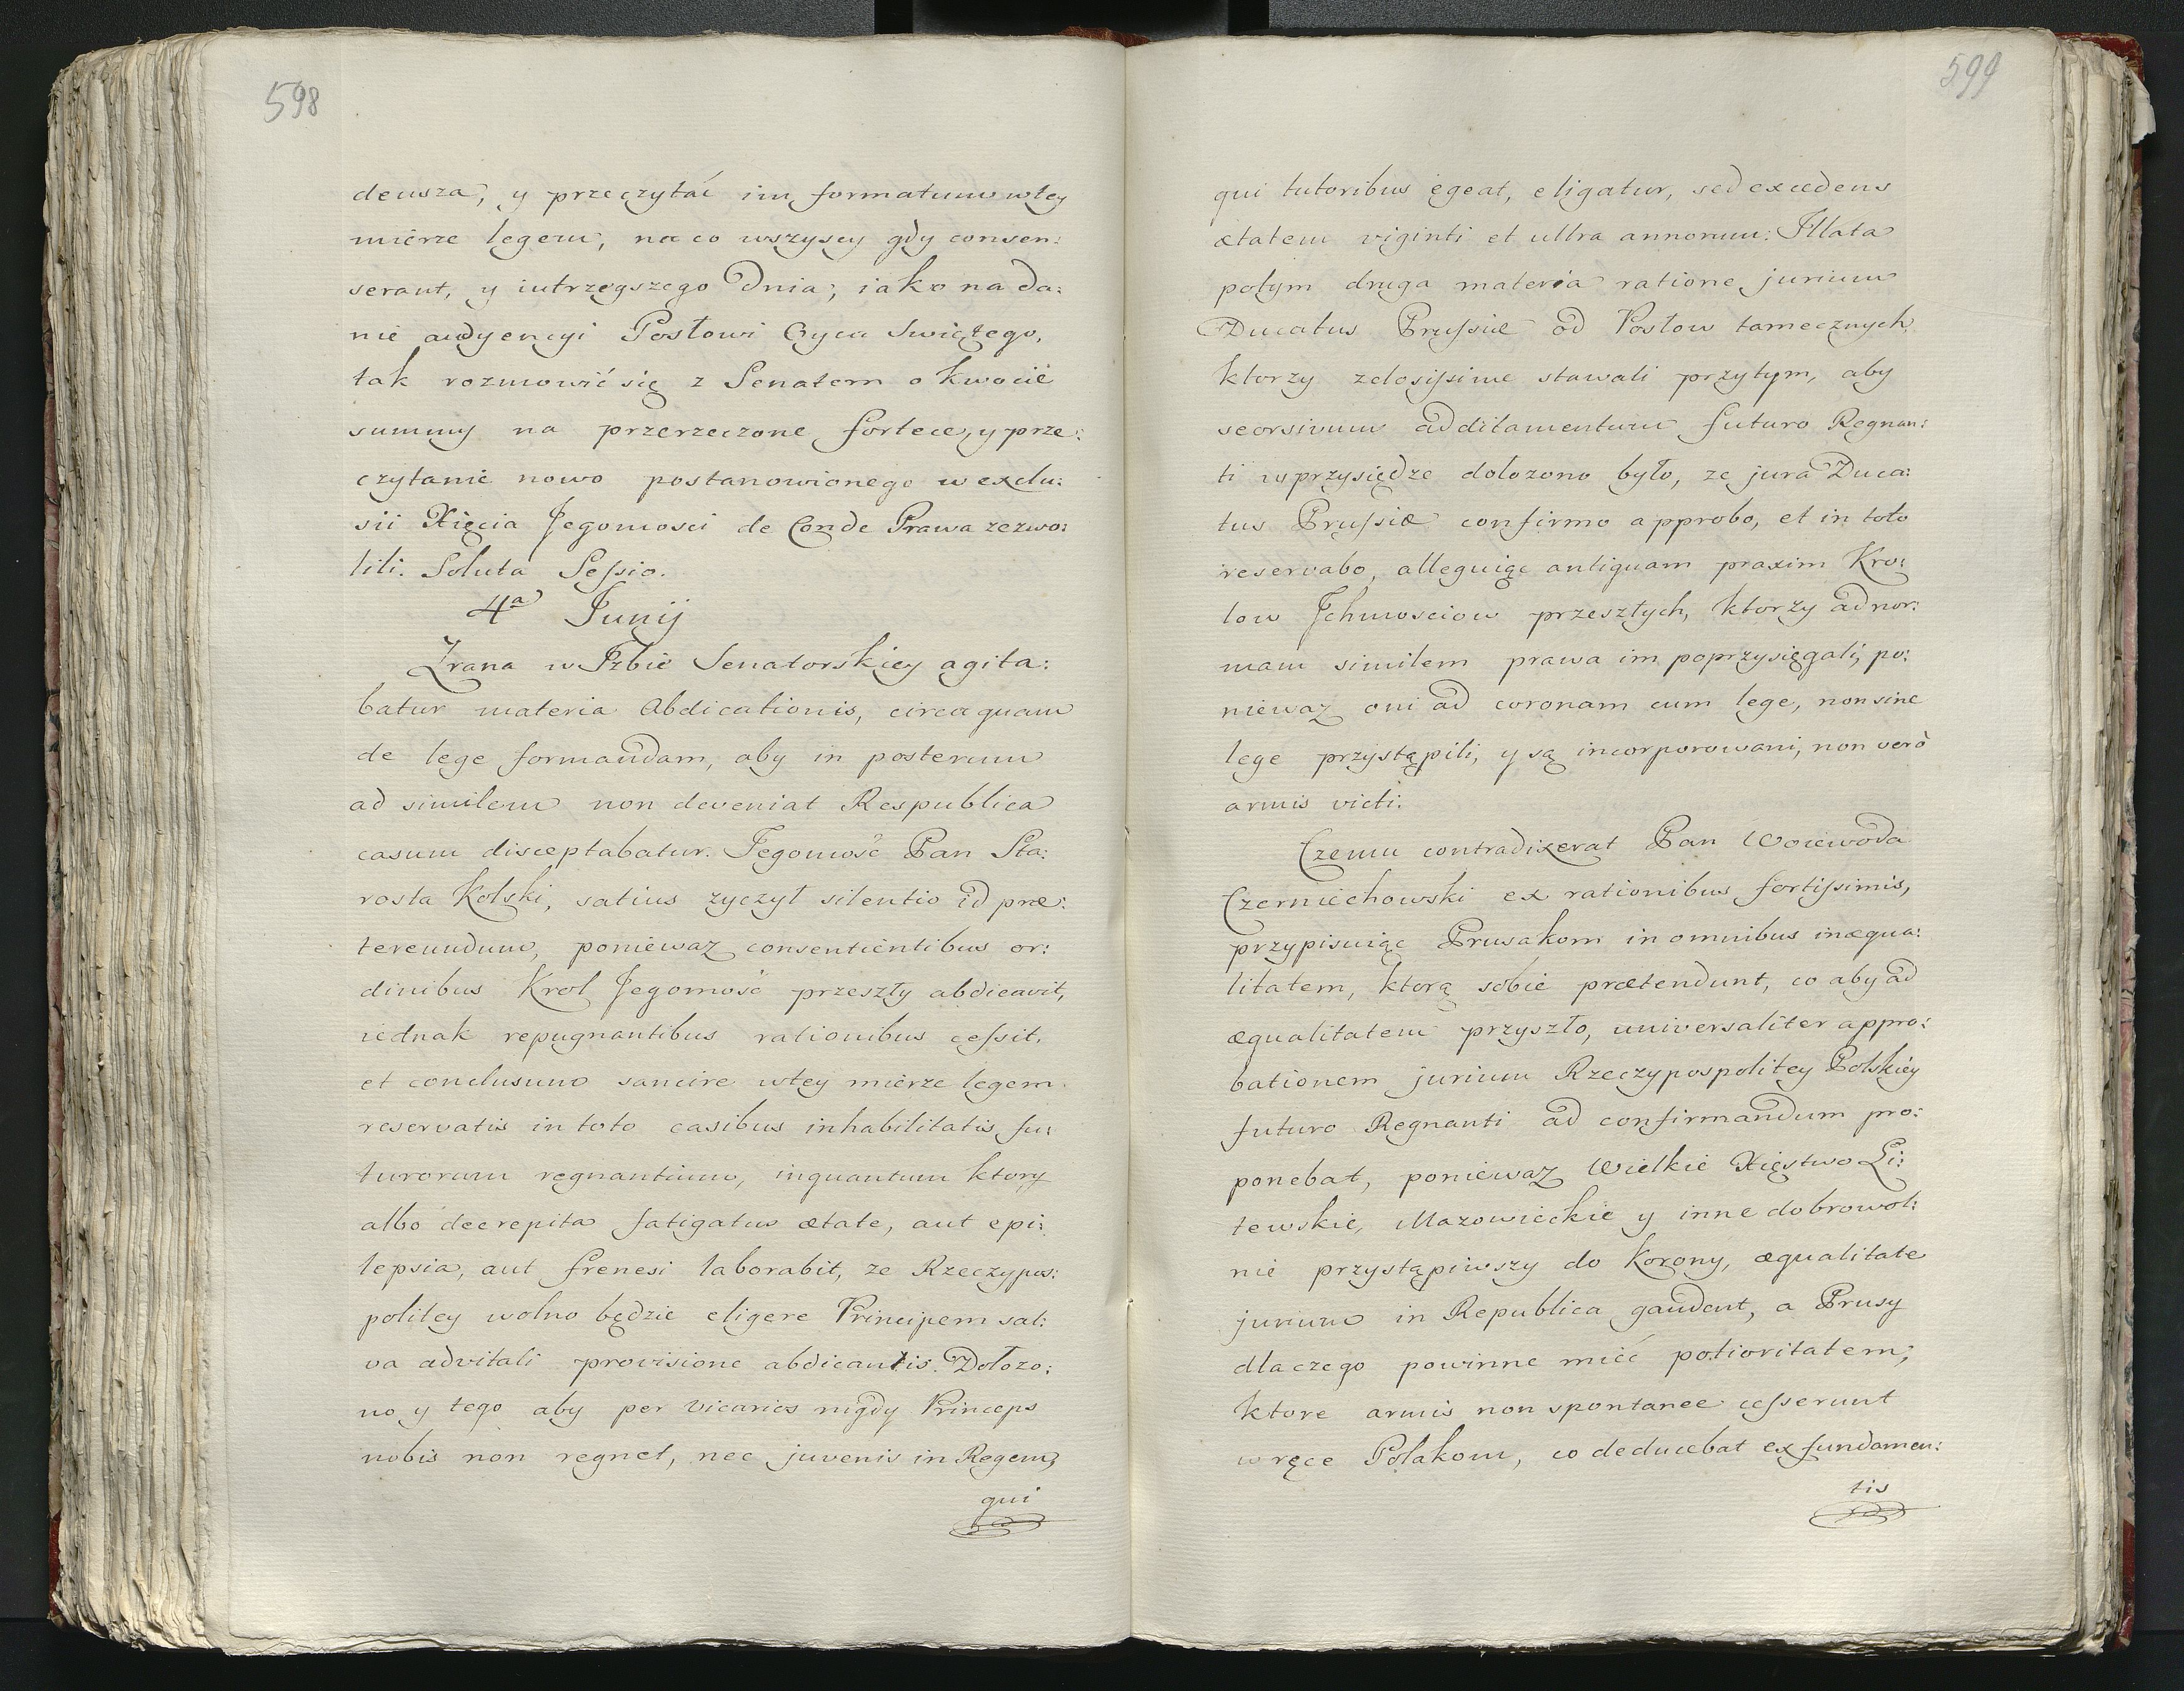 598
deusza, y przeczytać im formatum wtey
mierze legem, na co wszyscy gdy consen:
serant, y iutrzeyszego Dnia; iako na da:
nie audyencyi Posłowi Oyca Swiętego,
tak rozmowić się z Senatem o kwocie
summy na przerzeczone fortece, y prze:
czytanie nowo postanowionego w exclu:
sii Xięcia Jegomosci de Conde Prawa zezwo:
lili. Soluta Sessio.
4ª Junij
Zrana w Izbie Senatorskiey agita:
batur materia Abdicationis, circa quam
de lege formandam, aby in posterum
ad similem non deveniat Respublica
casum disceptabatur. Jegomość Pan Sta:
rosta Kolski, satius zyczył silentio id præ:
tereundum, poniewaz consentientibus or:
dinibus Krol Jegomość przeszły abdicavit,
iednak repugnantibus rationibus cessit,
et conclusum sancire wtey mierze legem
reservatis in toto casibus inhabilitatis fu:
turorum regnantium, inquantum ktory
albo decrepita fatigatus ætate, aut epi:
lepsia, aut frenesi laborabit, ze Rzeczypos:
politey wolno będzie eligere Principem sal:
va advitali provisione abdicantis. Dołozo:
no y tego aby per vicarios nigdy Princeps
nobis non regnet, nec juvenis in Regem,
qui
599
qui tutoribus egeat, eligatur, sed excedens
ætatem viginti et ultra annorum: Illata
potym druga materia ratione jurium
Ducatus Prussiæ od Posłow tamecznych,
ktorzy zelosissime stawali przytym, aby
seorsivum additamentum futuro Regnan:
ti w przysiędze dołozono było, ze jura Duca:
tus Prussiæ confirmo approbo, et in toto
reservabo, alleguiąc antiquam praxim Kro:
low Ichmosciow przeszłych, ktorzy ad nor:
mam similem prawa im poprzysięgali, po:
niewaz oni ad coronam cum lege, non sine
lege przystąpili, y są incorporowani, non verò
armis victi.
Czemu contradixerat Pan Woiewoda
Czerniechowski ex rationibus fortissimis,
przypisuiąc Prusakom in omnibus inæqua:
litatem, ktorą sobie prætendunt, co aby ad
æqualitatem przyszło, universaliter appro:
bationem jurium Rzeczypospolitey Polskiey
futuro Regnanti ad confirmandum pro:
ponebat, poniewaz Wielkie Xięstwo Li:
tewskie, Mazowieckie y inne dobrowol:
nie przystąpiwszy do Korony, æqualitate
jurium in Republica gaudent, a Prusy
dlaczego powinne mieć potioritatem,
ktore armis non spontanee cesserunt
w ręce Polakom, co deducebat ex fundamen:
tis